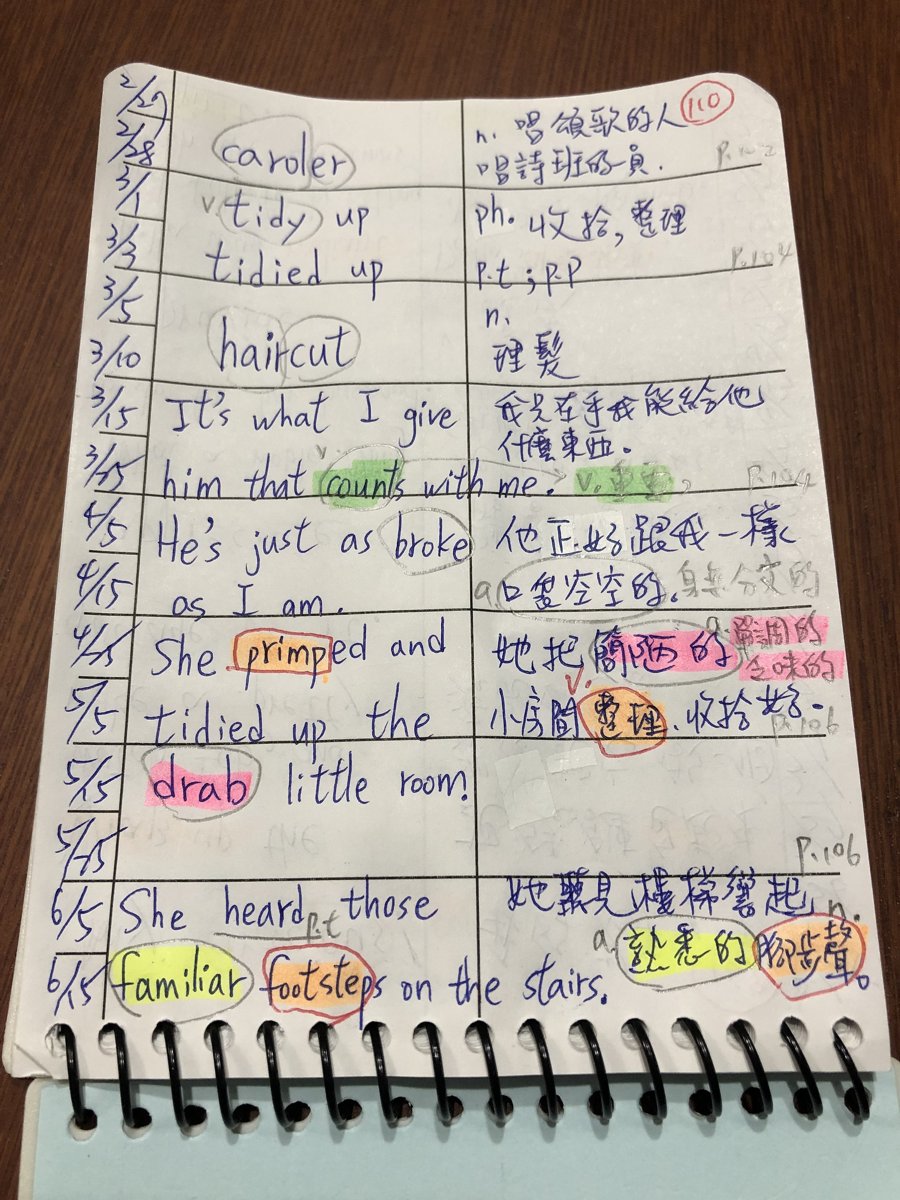 110
2/27
2/28 caroler n. 唱頌歌的人
唱詩班的員. p.102
3/1 v. tidy up ph. 收拾, 整理
3/3 tidied up p.t ; p.p p.104
3/5 n.
3/10 haircut 理髮
3/15 It's what I give 我只在乎我能給他
什麼東西。
3/25 v. him that counts with me. v. 重要, p.104
4/5 He's just as broke 他正好跟我一樣
4/15 as I am. a. 口袋空空的. 身無分文的
4/25 She primped and 她把簡陋的 a. 單調的
乏味的
5/5 tidied up the 小房間 v. 整理. 收拾好. p.106
5/15 drab little room!
5/25 p.106
6/5 She heard those 她聽見樓梯響起
p.t a. 熟悉的 n. 腳步聲。
6/15 familiar footsteps on the stairs.